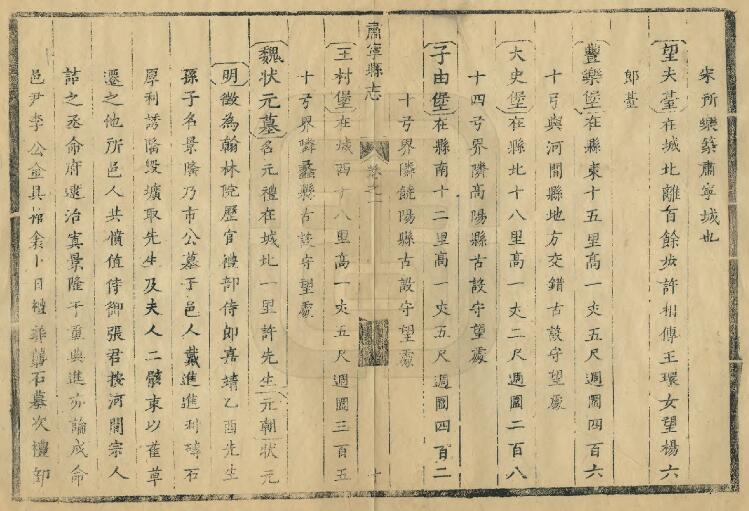 宋所㙮築肅寧城也
望夫臺在城北離百餘步許相傳王環女望楊六
郎臺
豐樂堡在縣東十五里高一丈五尺週圍四百六
十弓與河間縣地方交錯古設守望處
大史堡在縣北十八里高一丈二尺週圍二百八
十四弓界隣高陽縣古設守望處
子由堡在縣南十二里高一丈五尺週圍四百二
十弓界隣饒陽縣古設守望處
肅寧縣志
卷之一
十
王村堡在城西十八里高一丈五尺週圍三百五
十弓界隣蠡縣古設守望處
魏狀元墓名元禮在城北一里許先生元朝狀元
明徵為翰林院歷官禮部侍郎嘉靖乙酉先生
孫子名景隆乃市公墓于邑人戴進進利磚石
厚利誘隆毀壙取先生及夫人二骸束以萑草
遷之他所邑人共憤值侍御張君按河間宗人
訴之丞命府逮治寘景隆于重典進亦論戍命
邑尹李公金具棺衾卜日禮葬龔石墓次禮卸